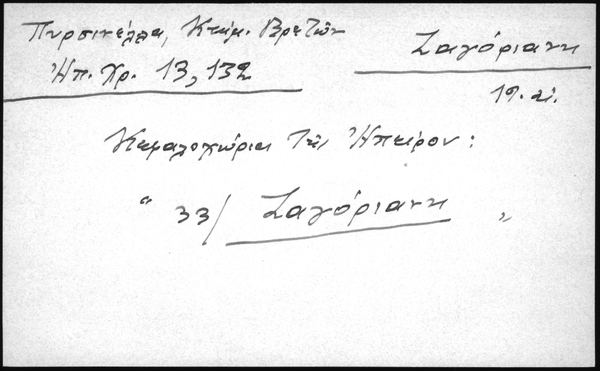 Πυρσινέλλα, Κτήμ. Βρετῶν
Ἠπ. Χρ. 13, 132
Ζαγόριανη
19. αἰ.
Κεφαλοχώρια τῆς Ἠπείρου:
“ 33/ Ζαγόριανη „